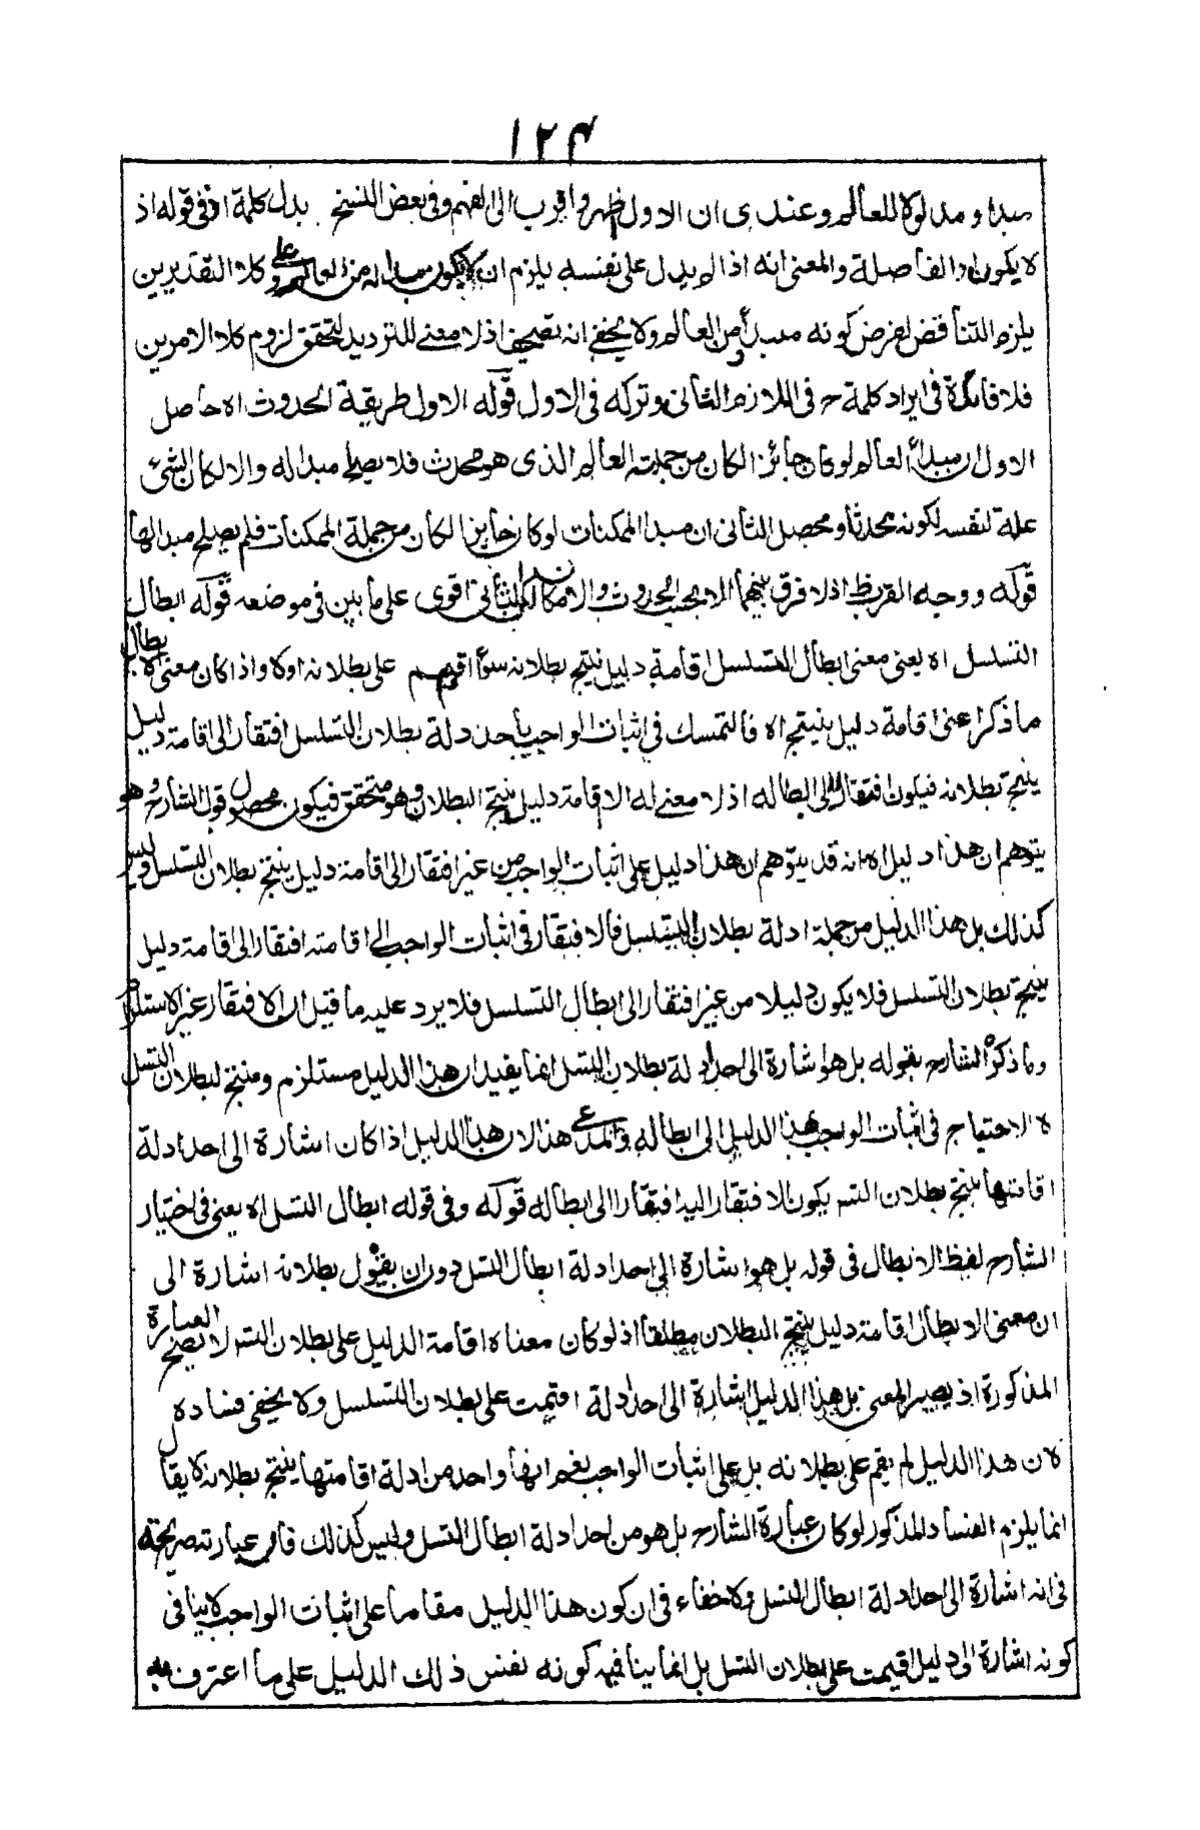 ١٢٤
مبدا و مدلولا للعالم وعندى ان الاول اظهر واقرب الى الفهم وفى بعض النسخ بدل كلمة او فى قوله اذ
لا يكون او الفاصلة والمعنى انه اذا لم يدل على نفسه يلزم ان لا يكون مبدا له من العالم وعلى كلا التقديرين
يلزم التناقض لفرض كونه مبدأ من العالم ولا يخفى انه تصحيف اذ لا معنى للترديد لتحقق لزوم كلا الامرين
فلا فائدة فى ايراد كلمة ح فى اللازم الثانى وتركه فى الاول قوله الاول طريقة الحدوث اه حاصل
الاول ان مبدأ العالم لو كان جائزا لكان من جملة العالم الذى هو محدث فلا يصلح مبدا له والا لكان الشئ
علة لنفسه لكونه محدثا ومحصل الثانى ان مبدا الممكنات لو كان جايزا لكان من جملة الممكنات فلم يصلح مبدا لها
قوله ووجه القرب ظ اذ لا فرق بينهما الا بحسب الحدوث والامكان لكن الثانى اقوى على ما بين فى موضعه قوله ابطال
التسلسل اه يعنى معنى ابطال التسلسل اقامة دليل ينتج بطلانه سواء اقيم على بطلانه اولا واذا كان معنى الابطال
ما ذكرا عنى اقامة دليل ينتج اه فالتمسك فى اثبات الواجب باحد ادلة بطلان التسلسل افتقار الى اقامة دليل
ينتج بطلانه فيكون افتقارا الى ابطاله اذ لا معنى له الا اقامة دليل ينتج البطلان وهو متحقق فيكون محصل قول الشارح وهو
يتوهم ان هذا دليل اه انه قد يتوهم ان هذا دليل على اثبات الواجب من غير افتقار الى اقامة دليل ينتج بطلان التسلسل وليس
كذلك بل هذا الدليل من جملة ادلة بطلان التسلسل فالافتقار فى اثبات الواجب الى اقامته افتقار الى اقامة دليل
ينتج بطلان التسلسل فلا يكون دليلا من غير افتقار الى ابطال التسلسل فلا يرد عليه ما قيل ان الافتقار غير الاستلزام
وما ذكره الشارح بقوله بل هو اشارة الى احد ادلة بطلان التسل انما يفيد ان هذا الدليل مستلزم ومنتج لبطلان التسل
لا الاحتياج فى اثبات الواجب بهذا الدليل الى ابطاله والمدعى هذا لان هذا الدليل اذا كان اشارة الى احد ادلة
اقامتها ينتج بطلان التسـ يكون الافتقار اليه افتقارا الى ابطاله قوله وفى قوله ابطال التسل اه يعنى فى اختيار
الشارح لفظ الابطال فى قوله بل هو اشارة الى احد ادلة ابطال التسل دون ان يقول بطلانه اشارة الى
ان معنى الابطال اقامة دليل ينتج البطلان مطلقا اذ لو كان معناه اقامة الدليل على بطلان التسـ لا يصح العبارة
المذكورة اذ يصير المعنى بل هذا الدليل اشارة الى احد ادلة اقيمت على بطلان التسلسل ولا يخفى فساده
لان هذا الدليل لم يقم على بطلانه بل على اثبات الواجب نعم انها واحد من ادلة اقامتها ينتج بطلانه لا يقال
انما يلزم الفساد المذكور لو كان عبارة الشارح بل هو من احد ادلة ابطال التسل وليس كذلك فان عبارته صريحة
فى انه اشارة الى احد ادلة ابطال التسل ولا خفاء فى ان كون هذا الدليل مقاما على اثبات الواجب لا ينافى
كونه اشارة الى دليل اقيمت على بطلان التسل بل انما ينافيه كونه نفس ذلك الدليل على ما اعترف به